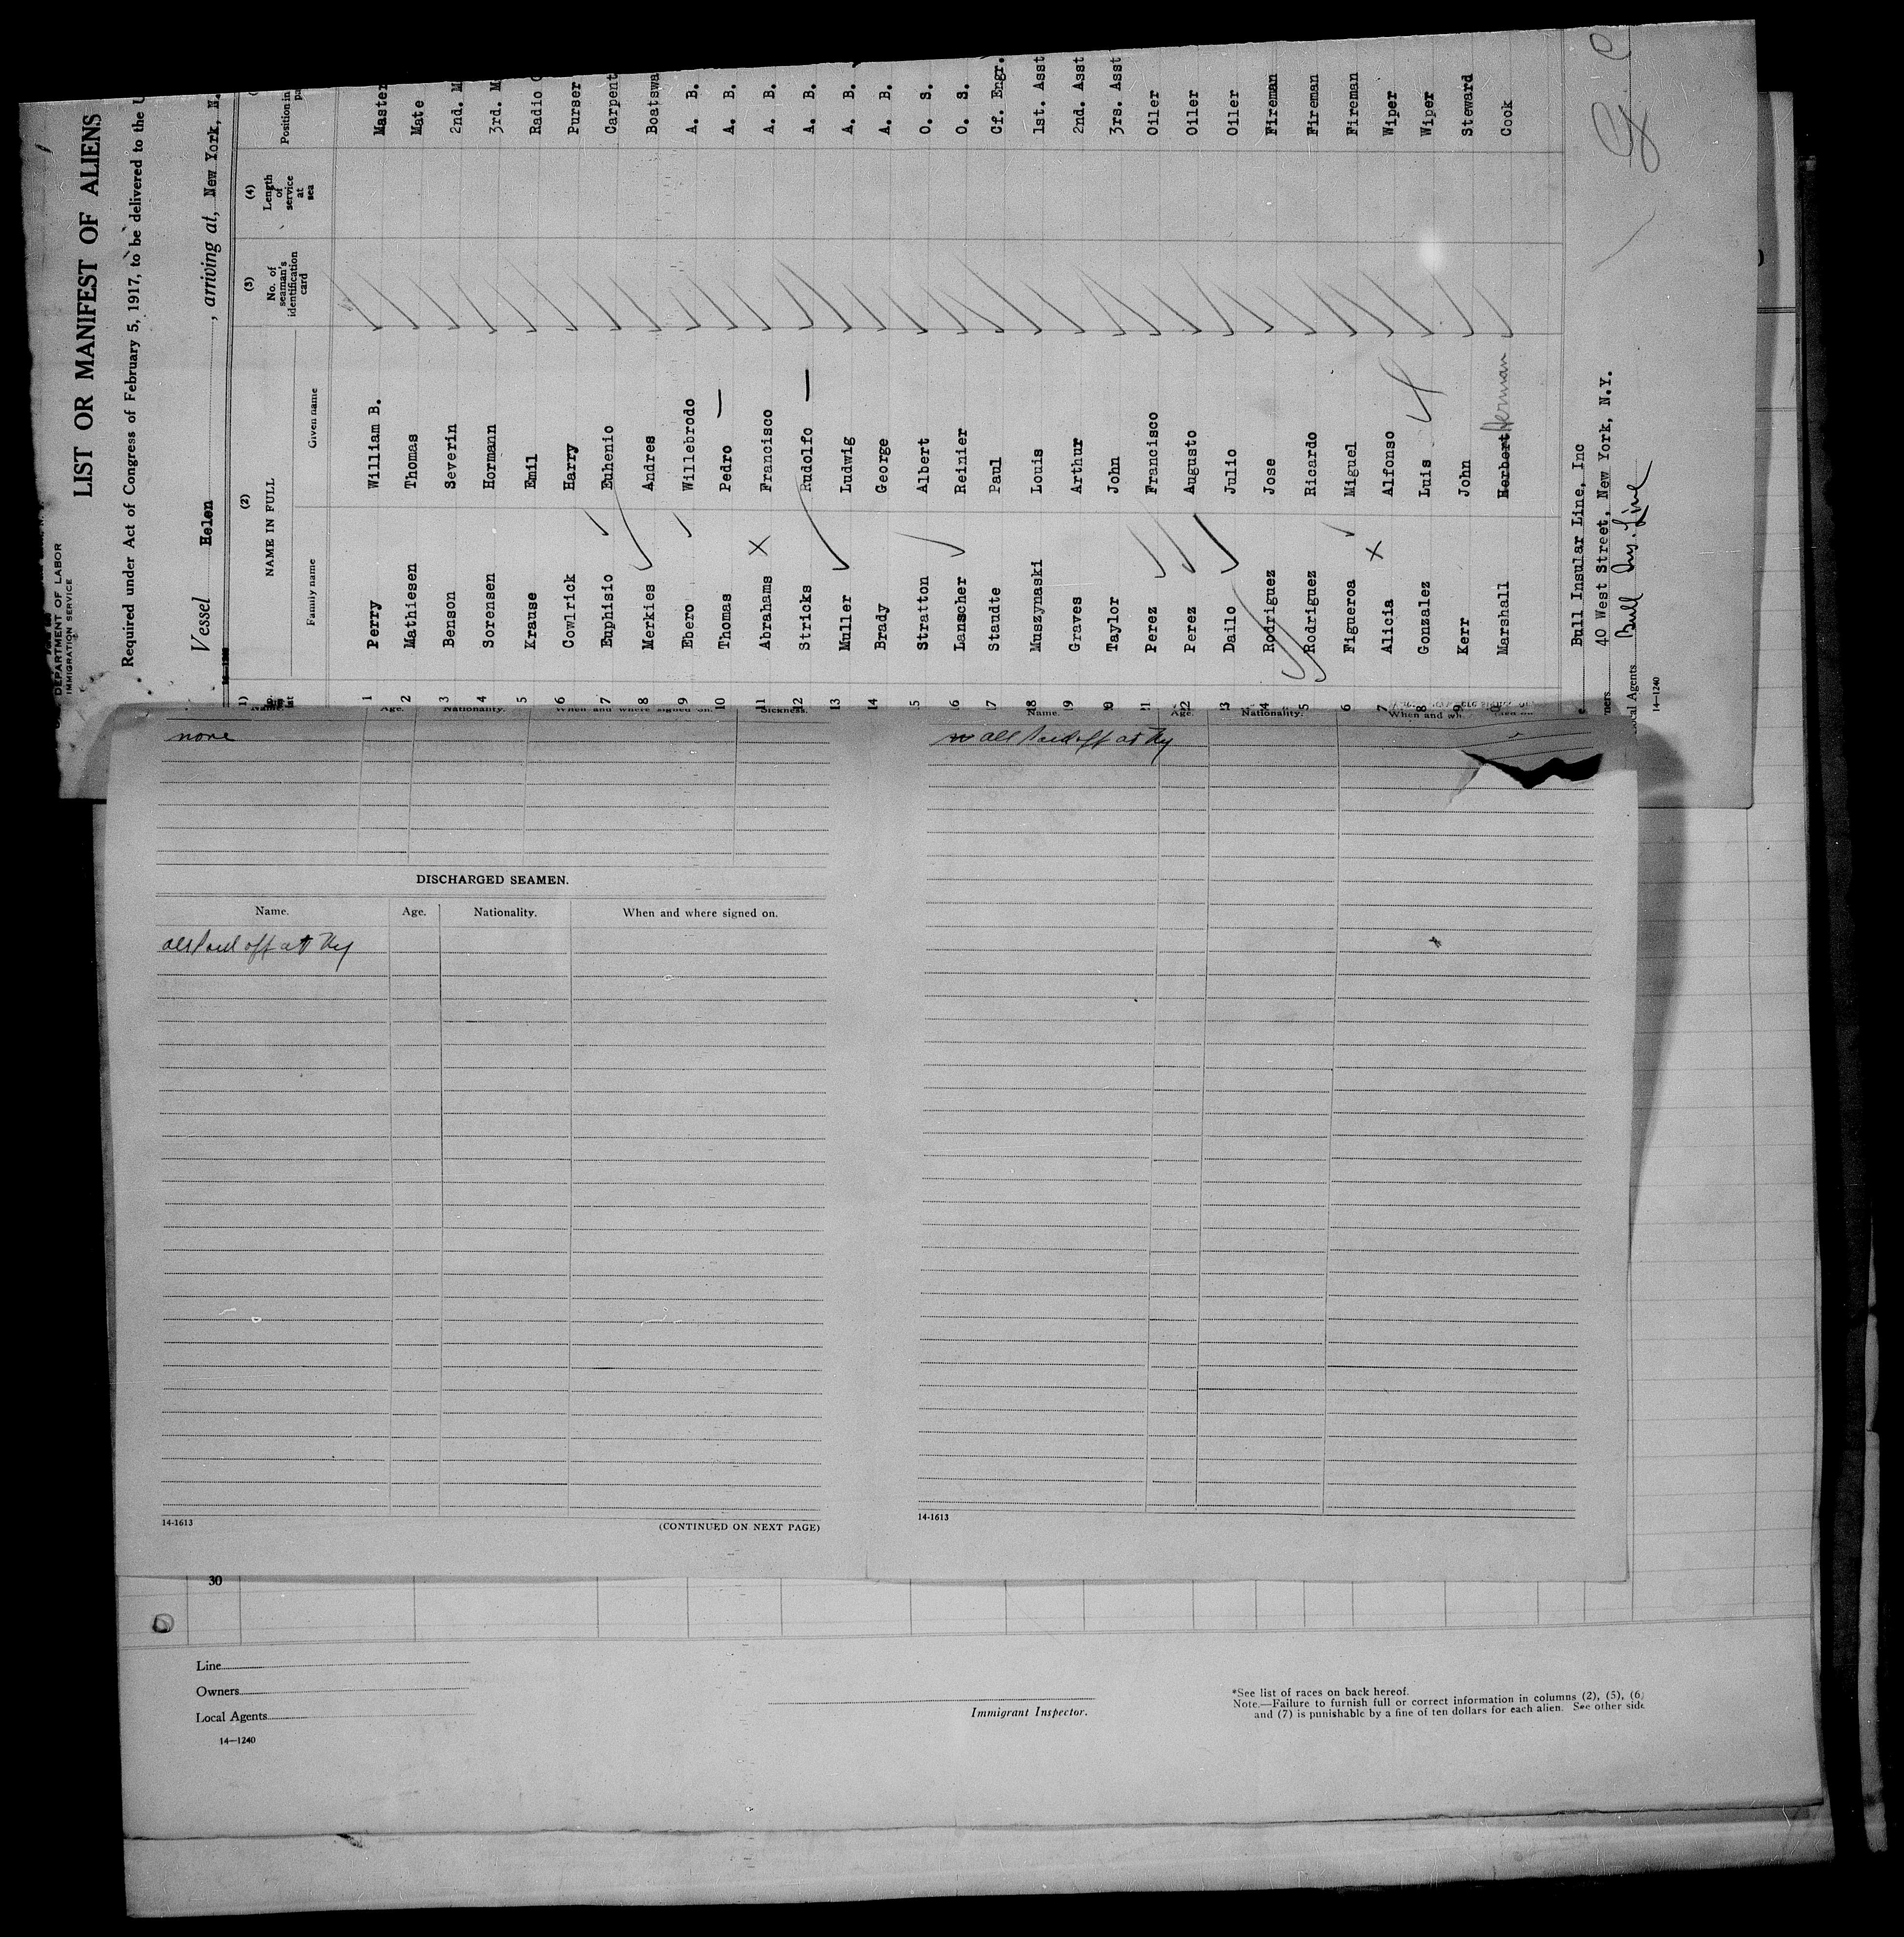 DEPARTMENT OF LABOR
IMMIGRATION SERVICE
LIST OR MANIFEST OF ALIENS
Required under Act of Congress of February 5, 1917, to be delivered to the U
Vessel Helen, arriving at, New York, N.
(2) (3) (4)
NAME IN FULL No. of seaman's identification card Length of service at sea Position in
Family name Given name
1 Perry William B. Master
2 Mathiesen Thomas Mate
3 Benson Severin 2nd. M
4 Sorensen Hormann 3rd. M
5 Krause Emil Radio
6 Cowlrick Harry Purser
7 Euphisio Euhenio Carpent
8 Merkies Andres Boatswa
9 Ebero Willebrodo A. B.
10 Thomas Pedro — A. B.
11 Abrahams X Francisco A. B.
12 Stricks Rudolfo — A. B.
13 Muller Ludwig A. B.
14 Brady George A. B.
5 Stratton Albert O. S.
16 Lanscher Reinier O. S.
17 Staudte Paul Cf. Engr.
18 Muszynaski Louis 1st. Asst
19 Graves Arthur 2nd. Asst
Taylor John 3rs. Asst
Perez Francisco Oiler
22 Perez Augusto Oiler
3 Dailo Julio Oiler
4 Rodriguez Jose Fireman
5 Rodriguez Ricardo Fireman
6 Figueroa Miguel Fireman
7 Alicia X Alfonso Wiper
8 Gonzalez Luis Wiper
9 Kerr John Steward
Marshall Herbert Herman Cook
Bull Insular Line, Inc
40 West Street, New York, N.Y.
Local Agents Bull Ins. Line
14—1240
Name. Age. Nationality. When and where signed on. Sickness.
none
DISCHARGED SEAMEN.
Name. Age. Nationality. When and where signed on.
all Paid off at Ny
14-1613
(CONTINUED ON NEXT PAGE)
Name. Age. Nationality. When and wh
all Paid off at Ny
14-1613
30
Line
Owners
Local Agents
14—1240
Immigrant Inspector.
*See list of races on back hereof.
Note.—Failure to furnish full or correct information in columns (2), (5), (6)
and (7) is punishable by a fine of ten dollars for each alien. See other side